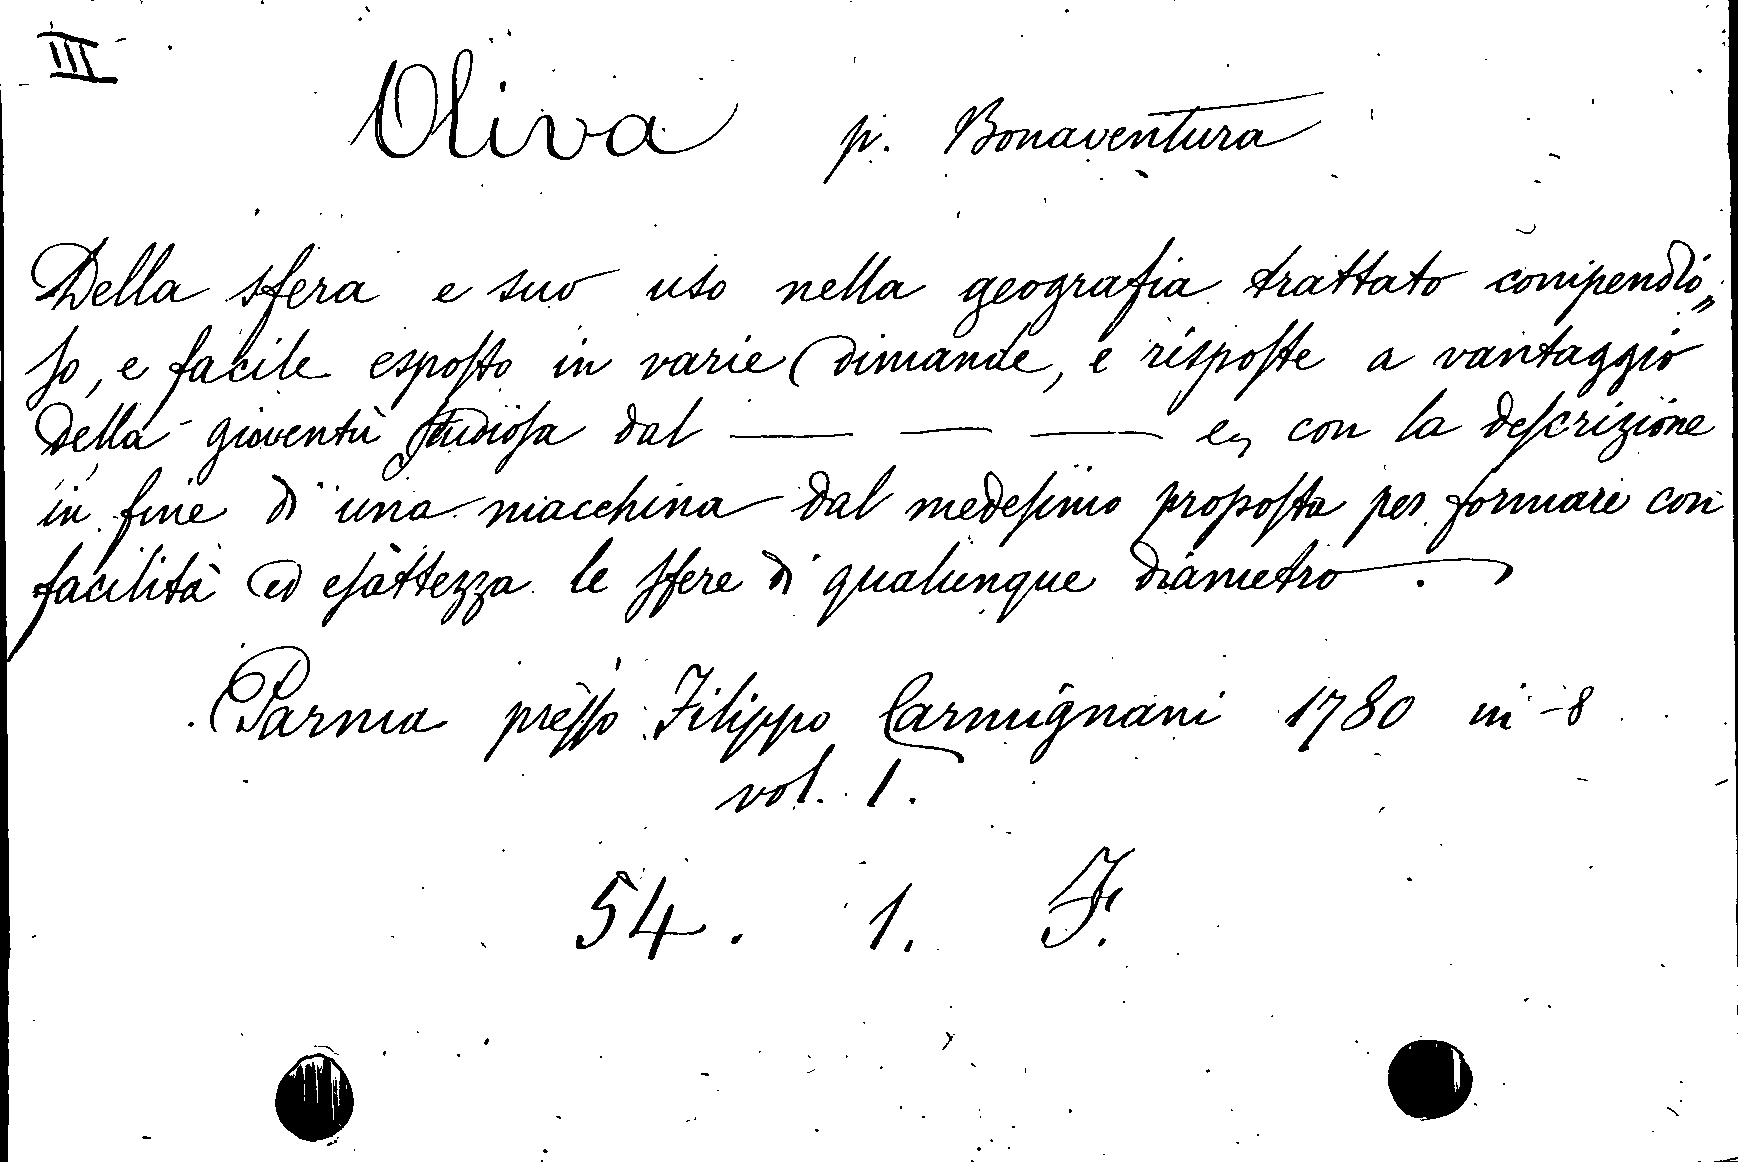 III
Oliva p. Bonaventura
Della sfera e suo uso nella geografia trattato compendio„
so, e facile esposto in varie dimande, e risposte a vantaggio
della gioventù studiosa dal — — — e, con la descrizione
in fine di una macchina dal medesimo proposta per formare con
facilità ed esattezza le sfere di qualunque diametro.
Parma presso Filippo Carmignani 1780 in-8
vol. 1.
54. 1. F.